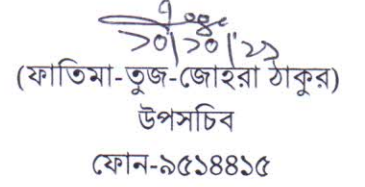 ১০/১০/২১
(ফাতিমা-তুজ-জোহরা ঠাকুর)
উপসচিব
ফোন-৯৫১৪৪১৫